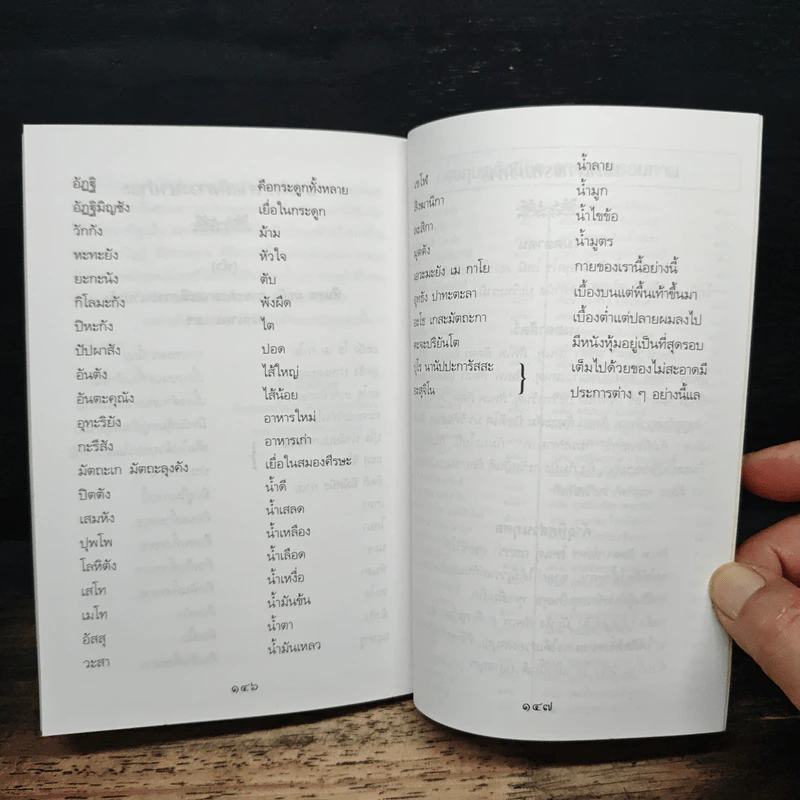 อัฏฐิ คือกระดูกทั้งหลาย
อัฏฐิมิญชัง เยื่อในกระดูก
วักกัง ม้าม
หะทะยัง หัวใจ
ยะกะนัง ตับ
กิโลมะกัง พังผืด
ปิหะกัง ไต
ปัปผาสัง ปอด
อันตัง ไส้ใหญ่
อันตะคุณัง ไส้น้อย
อุทะริยัง อาหารใหม่
กะรีสัง อาหารเก่า
มัตถะเก มัตถะลุงคัง เยื่อในสมองศีรษะ
ปิตตัง น้ำดี
เสมหัง น้ำเสลด
ปุพโพ น้ำเหลือง
โลหิตัง น้ำเลือด
เสโท น้ำเหงื่อ
เมโท น้ำมันข้น
อัสสุ น้ำตา
วะสา น้ำมันเหลว
๑๔๖
เขโฬ น้ำลาย
สิงฆานิกา น้ำมูก
ละสิกา น้ำไขข้อ
มุตตัง น้ำมูตร
เอวะมะยัง เม กาโย กายของเรานี้อย่างนี้
อุทธัง ปาทะตะลา เบื้องบนแต่พื้นเท้าขึ้นมา
อะโธ เกสะมัตถะกา เบื้องต่ำแต่ปลายผมลงไป
ตะจะปริยันโต มีหนังหุ้มอยู่เป็นที่สุดรอบ
ปุโร นานัปปะการัสสะ เต็มไปด้วยของไม่สะอาดมี
อะสุจิโน ประการต่าง ๆ อย่างนี้แล
๑๔๗